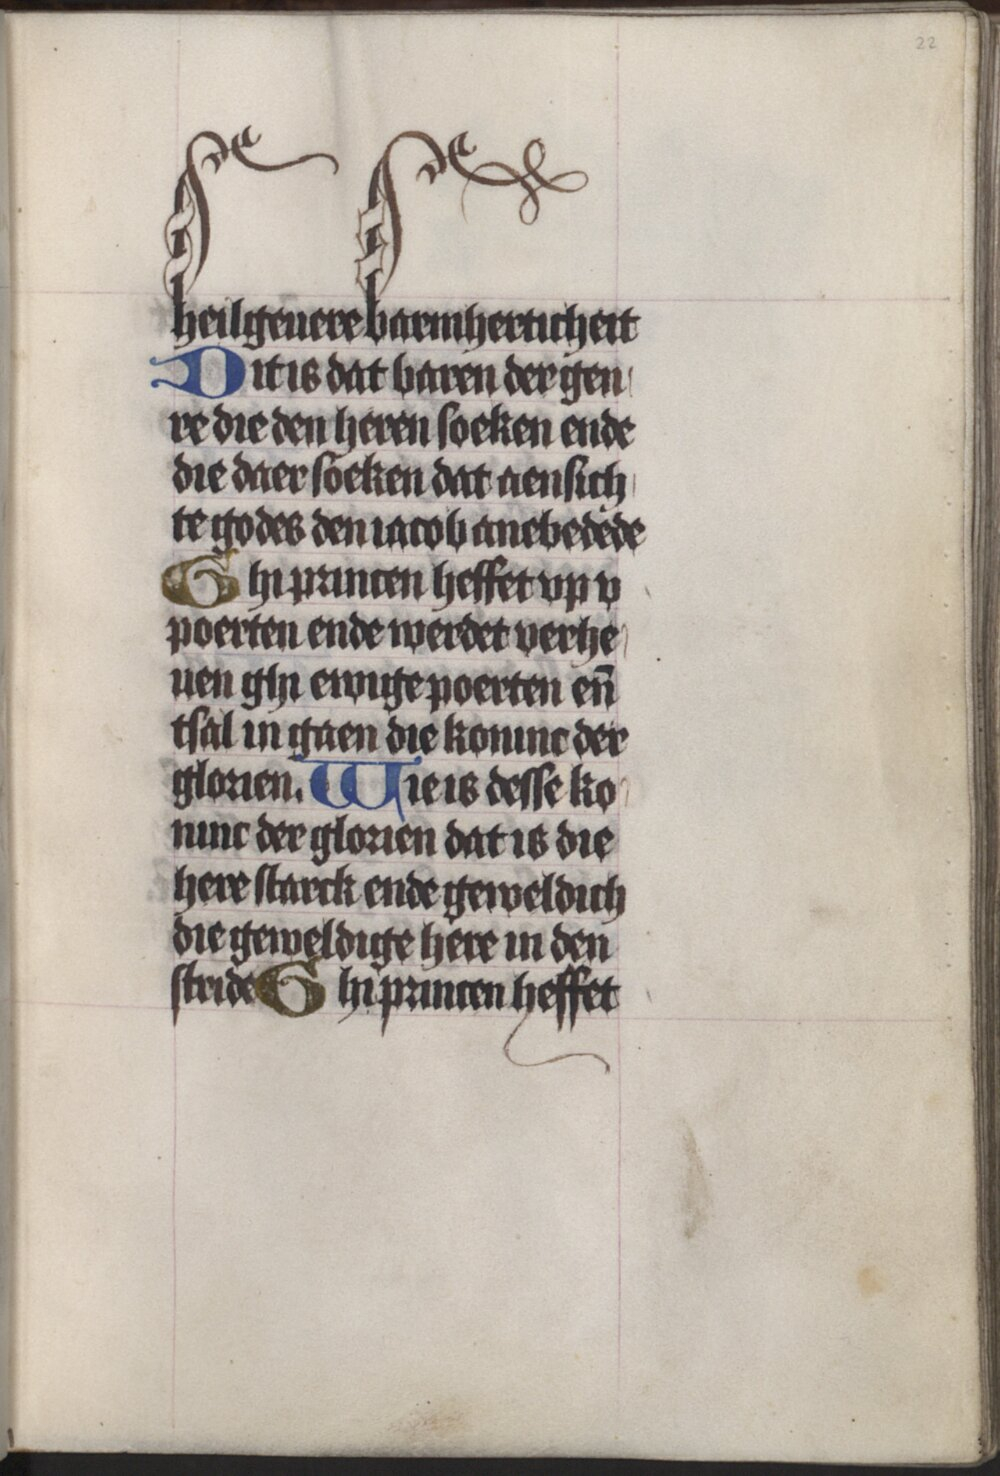 22
heilgeuere barmherticheit
Dit is dat baren der gen
re die den heren soeken ende
die daer soeken dat aensich
te godes den iacob anebedede
Ghi princen heffet vp v
poerten ende werdet verhe
uen ghi ewige poerten en̄
tsal in gaen die koninc der
glorien. Wie is desse ko
ninc der glorien dat is die
here starck ende geweldich
die geweldige here in den
stride Ghi princen heffet